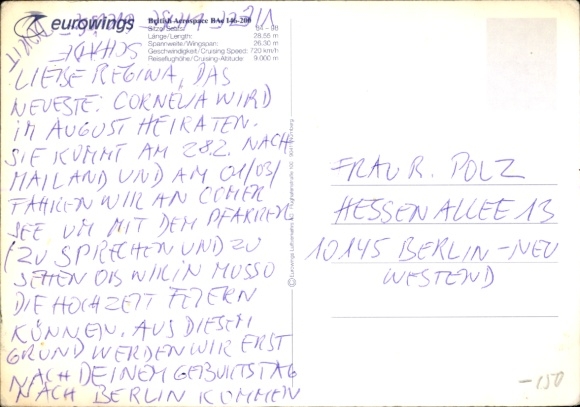 eurowings
British Aerospace BAe 146-200
Sitze/Seats: 84 - 98
Länge/Length: 28,55 m
Spannweite/Wingspan: 26,30 m
Geschwindigkeit/Cruising Speed: 720 km/h
Reiseflughöhe/Cruising-Altitude: 9.000 m
SCHADE
LIEBE REGINA, DAS
NEUESTE: CORNELIA WIRD
IM AUGUST HEIRATEN.
SIE KOMMT AM 28.2. NACH
MAILAND UND AM 01/03/
FAHREN WIR AN COMER
SEE UM MIT DEM PFARRER
ZU SPRECHEN UND ZU
SEHEN OB WIR IN MUSSO
DIE HOCHZEIT FEIERN
KÖNNEN. AUS DIESEM
GRUND WERDEN WIR ERST
NACH DEINEM GEBURTSTAG
NACH BERLIN KOMMEN
© Eurowings Luftverkehrs
FRAU R. POLZ
HESSENALLEE 13
10145 BERLIN-NEU
WESTEND
-150